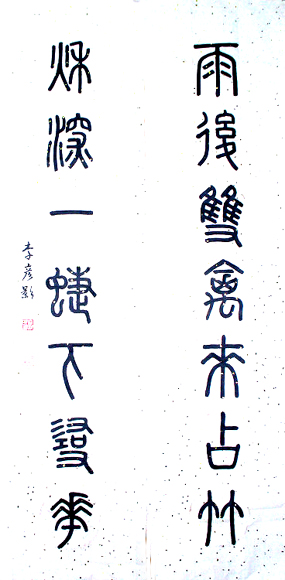 雨後雙禽來占竹
秋深一蜨下尋華
李彥影